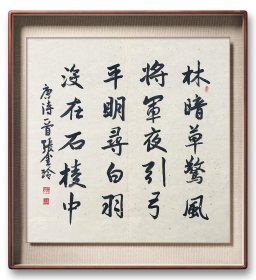 林暗草驚風
將軍夜引弓
平明尋白羽
沒在石棱中
唐詩一首張金玲